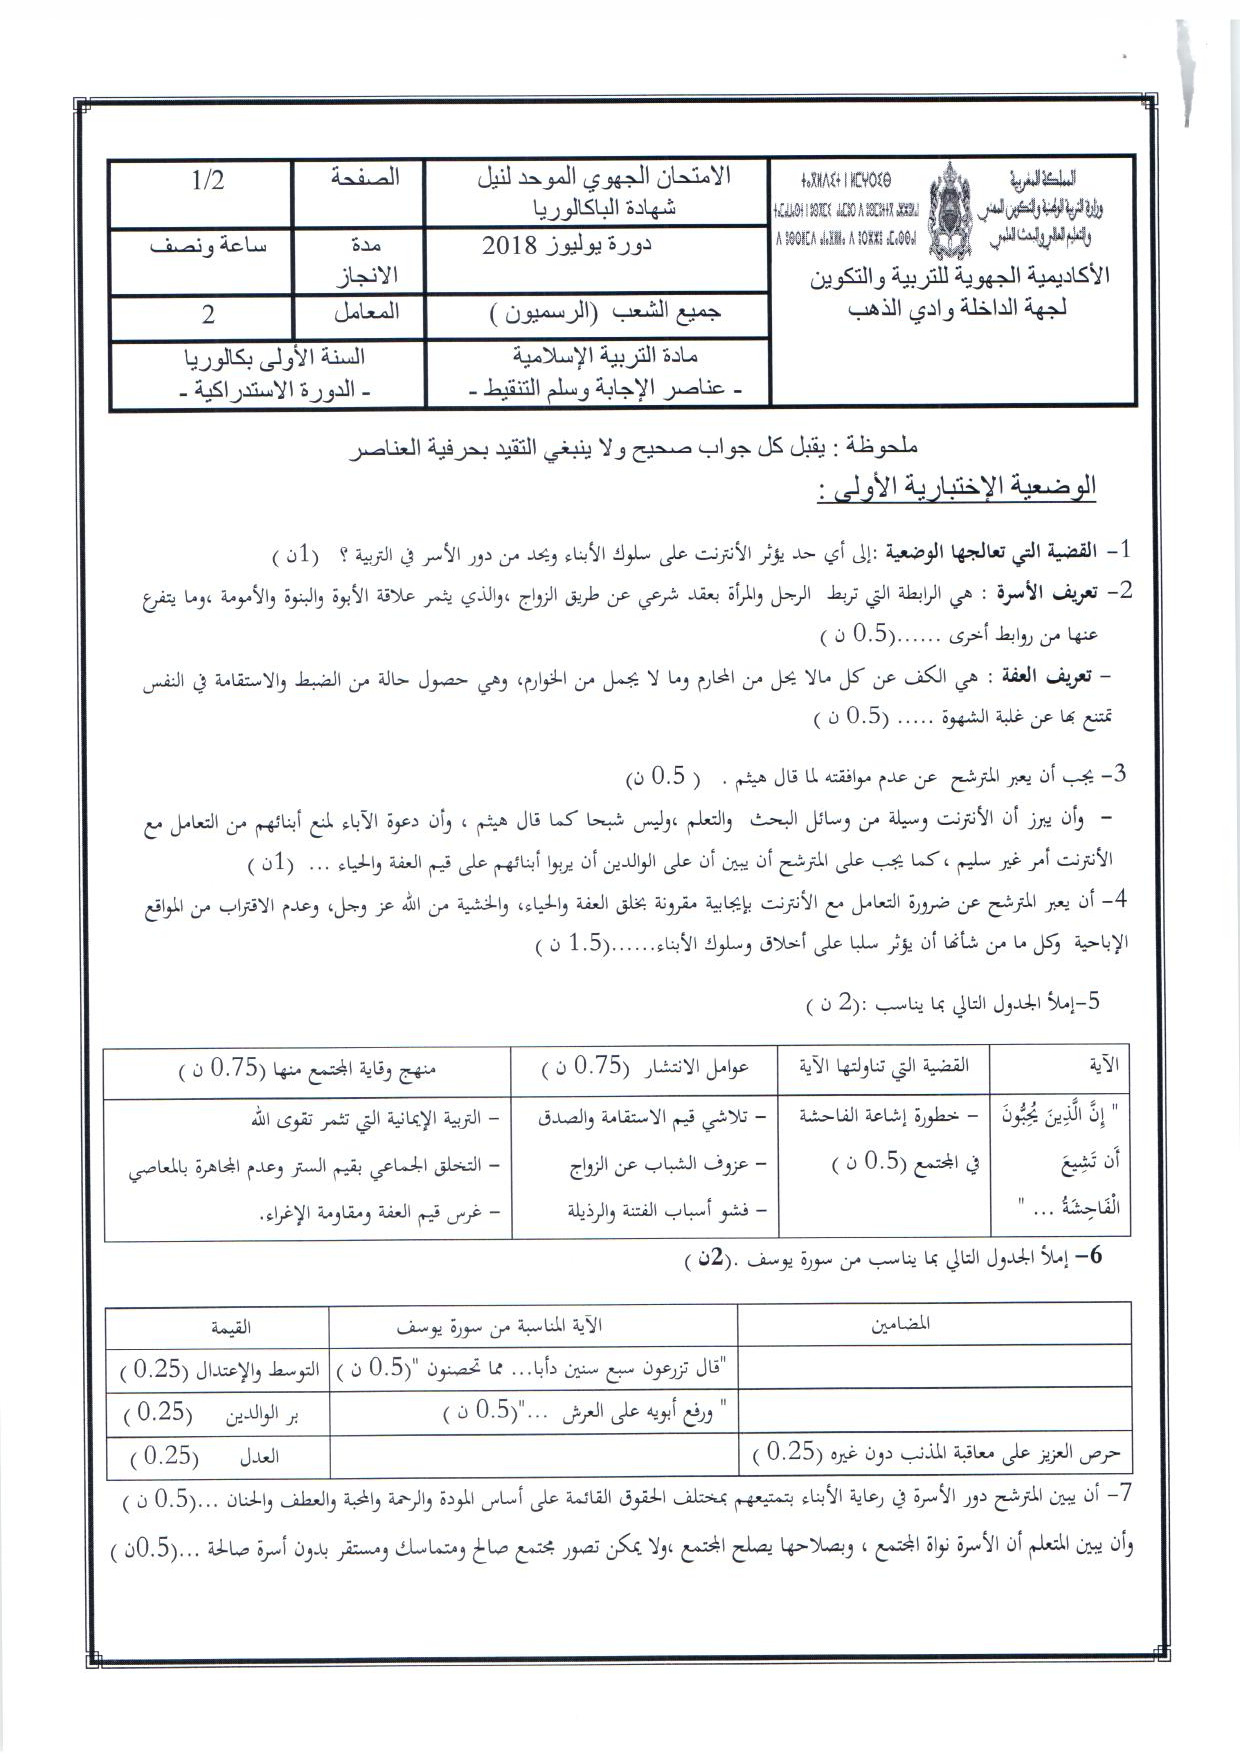 المملكة المغربية
وزارة التربية الوطنية والتكوين المهني
والتعليم العالي والبحث العلمي
الأكاديمية الجهوية للتربية والتكوين
لجهة الداخلة وادي الذهب
الامتحان الجهوي الموحد لنيل
شهادة الباكالوريا
الصفحة
1/2
دورة يوليوز 2018
مدة
الانجاز
ساعة ونصف
جميع الشعب (الرسميون )
المعامل
2
مادة التربية الإسلامية
- عناصر الإجابة وسلم التنقيط -
السنة الأولى بكالوريا
- الدورة الاستدراكية -
ملحوظة : يقبل كل جواب صحيح ولا ينبغي التقيد بحرفية العناصر
الوضعية الإختبارية الأولى :
1- القضية التي تعالجها الوضعية :إلى أي حد يؤثر الأنترنت على سلوك الأبناء ويحد من دور الأسر في التربية ؟ (1ن )
2- تعريف الأسرة : هي الرابطة التي تربط الرجل والمرأة بعقد شرعي عن طريق الزواج ،والذي يثمر علاقة الأبوة والبنوة والأمومة ،وما يتفرع
عنها من روابط أخرى ......(0.5 ن )
- تعريف العفة : هي الكف عن كل مالا يحل من المحارم وما لا يجمل من الخوارم، وهي حصول حالة من الضبط والاستقامة في النفس
تمتنع بها عن غلبة الشهوة ..... (0.5 ن )
3- يجب أن يعبر المترشح عن عدم موافقته لما قال هيثم . ( 0.5 ن)
- وأن يبرز أن الأنترنت وسيلة من وسائل البحث والتعلم ،وليس شبحا كما قال هيثم ، وأن دعوة الآباء لمنع أبنائهم من التعامل مع
الأنترنت أمر غير سليم ، كما يجب على المترشح أن يبين أن على الوالدين أن يربوا أبنائهم على قيم العفة والحياء ... (1ن )
4- أن يعبر المترشح عن ضرورة التعامل مع الأنترنت بإيجابية مقرونة بخلق العفة والحياء، والخشية من الله عز وجل، وعدم الاقتراب من المواقع
الإباحية وكل ما من شأنها أن يؤثر سلبا على أخلاق وسلوك الأبناء......(1.5 ن )
5-إملأ الجدول التالي بما يناسب :(2 ن )
الآية
القضية التي تناولتها الآية
عوامل الانتشار (0.75 ن )
منهج وقاية المجتمع منها (0.75 ن )
" إِنَّ الَّذِينَ يُحِبُّونَ
أَن تَشِيعَ
الْفَاحِشَةُ ... "
- خطورة إشاعة الفاحشة
في المجتمع (0.5 ن )
- تلاشي قيم الاستقامة والصدق
- عزوف الشباب عن الزواج
- فشو أسباب الفتنة والرذيلة
- التربية الإيمانية التي تثمر تقوى الله
- التخلق الجماعي بقيم الستر وعدم المجاهرة بالمعاصي
- غرس قيم العفة ومقاومة الإغراء.
6- إملأ الجدول التالي بما يناسب من سورة يوسف .(2ن )
المضامين
الآية المناسبة من سورة يوسف
القيمة
"قال تزرعون سبع سنين دأبا... مما تحصنون "(0.5 ن )
التوسط والإعتدال (0.25 )
" ورفع أبويه على العرش ..."(0.5 ن )
بر الوالدين (0.25 )
حرص العزيز على معاقبة المذنب دون غيره (0.25 )
العدل (0.25 )
7- أن يبين المترشح دور الأسرة في رعاية الأبناء بتمتيعهم بمختلف الحقوق القائمة على أساس المودة والرحمة والمحبة والعطف والحنان ...(0.5 ن )
وأن يبين المتعلم أن الأسرة نواة المجتمع ، وبصلاحها يصلح المجتمع ،ولا يمكن تصور مجتمع صالح ومتماسك ومستقر بدون أسرة صالحة ...(0.5ن )